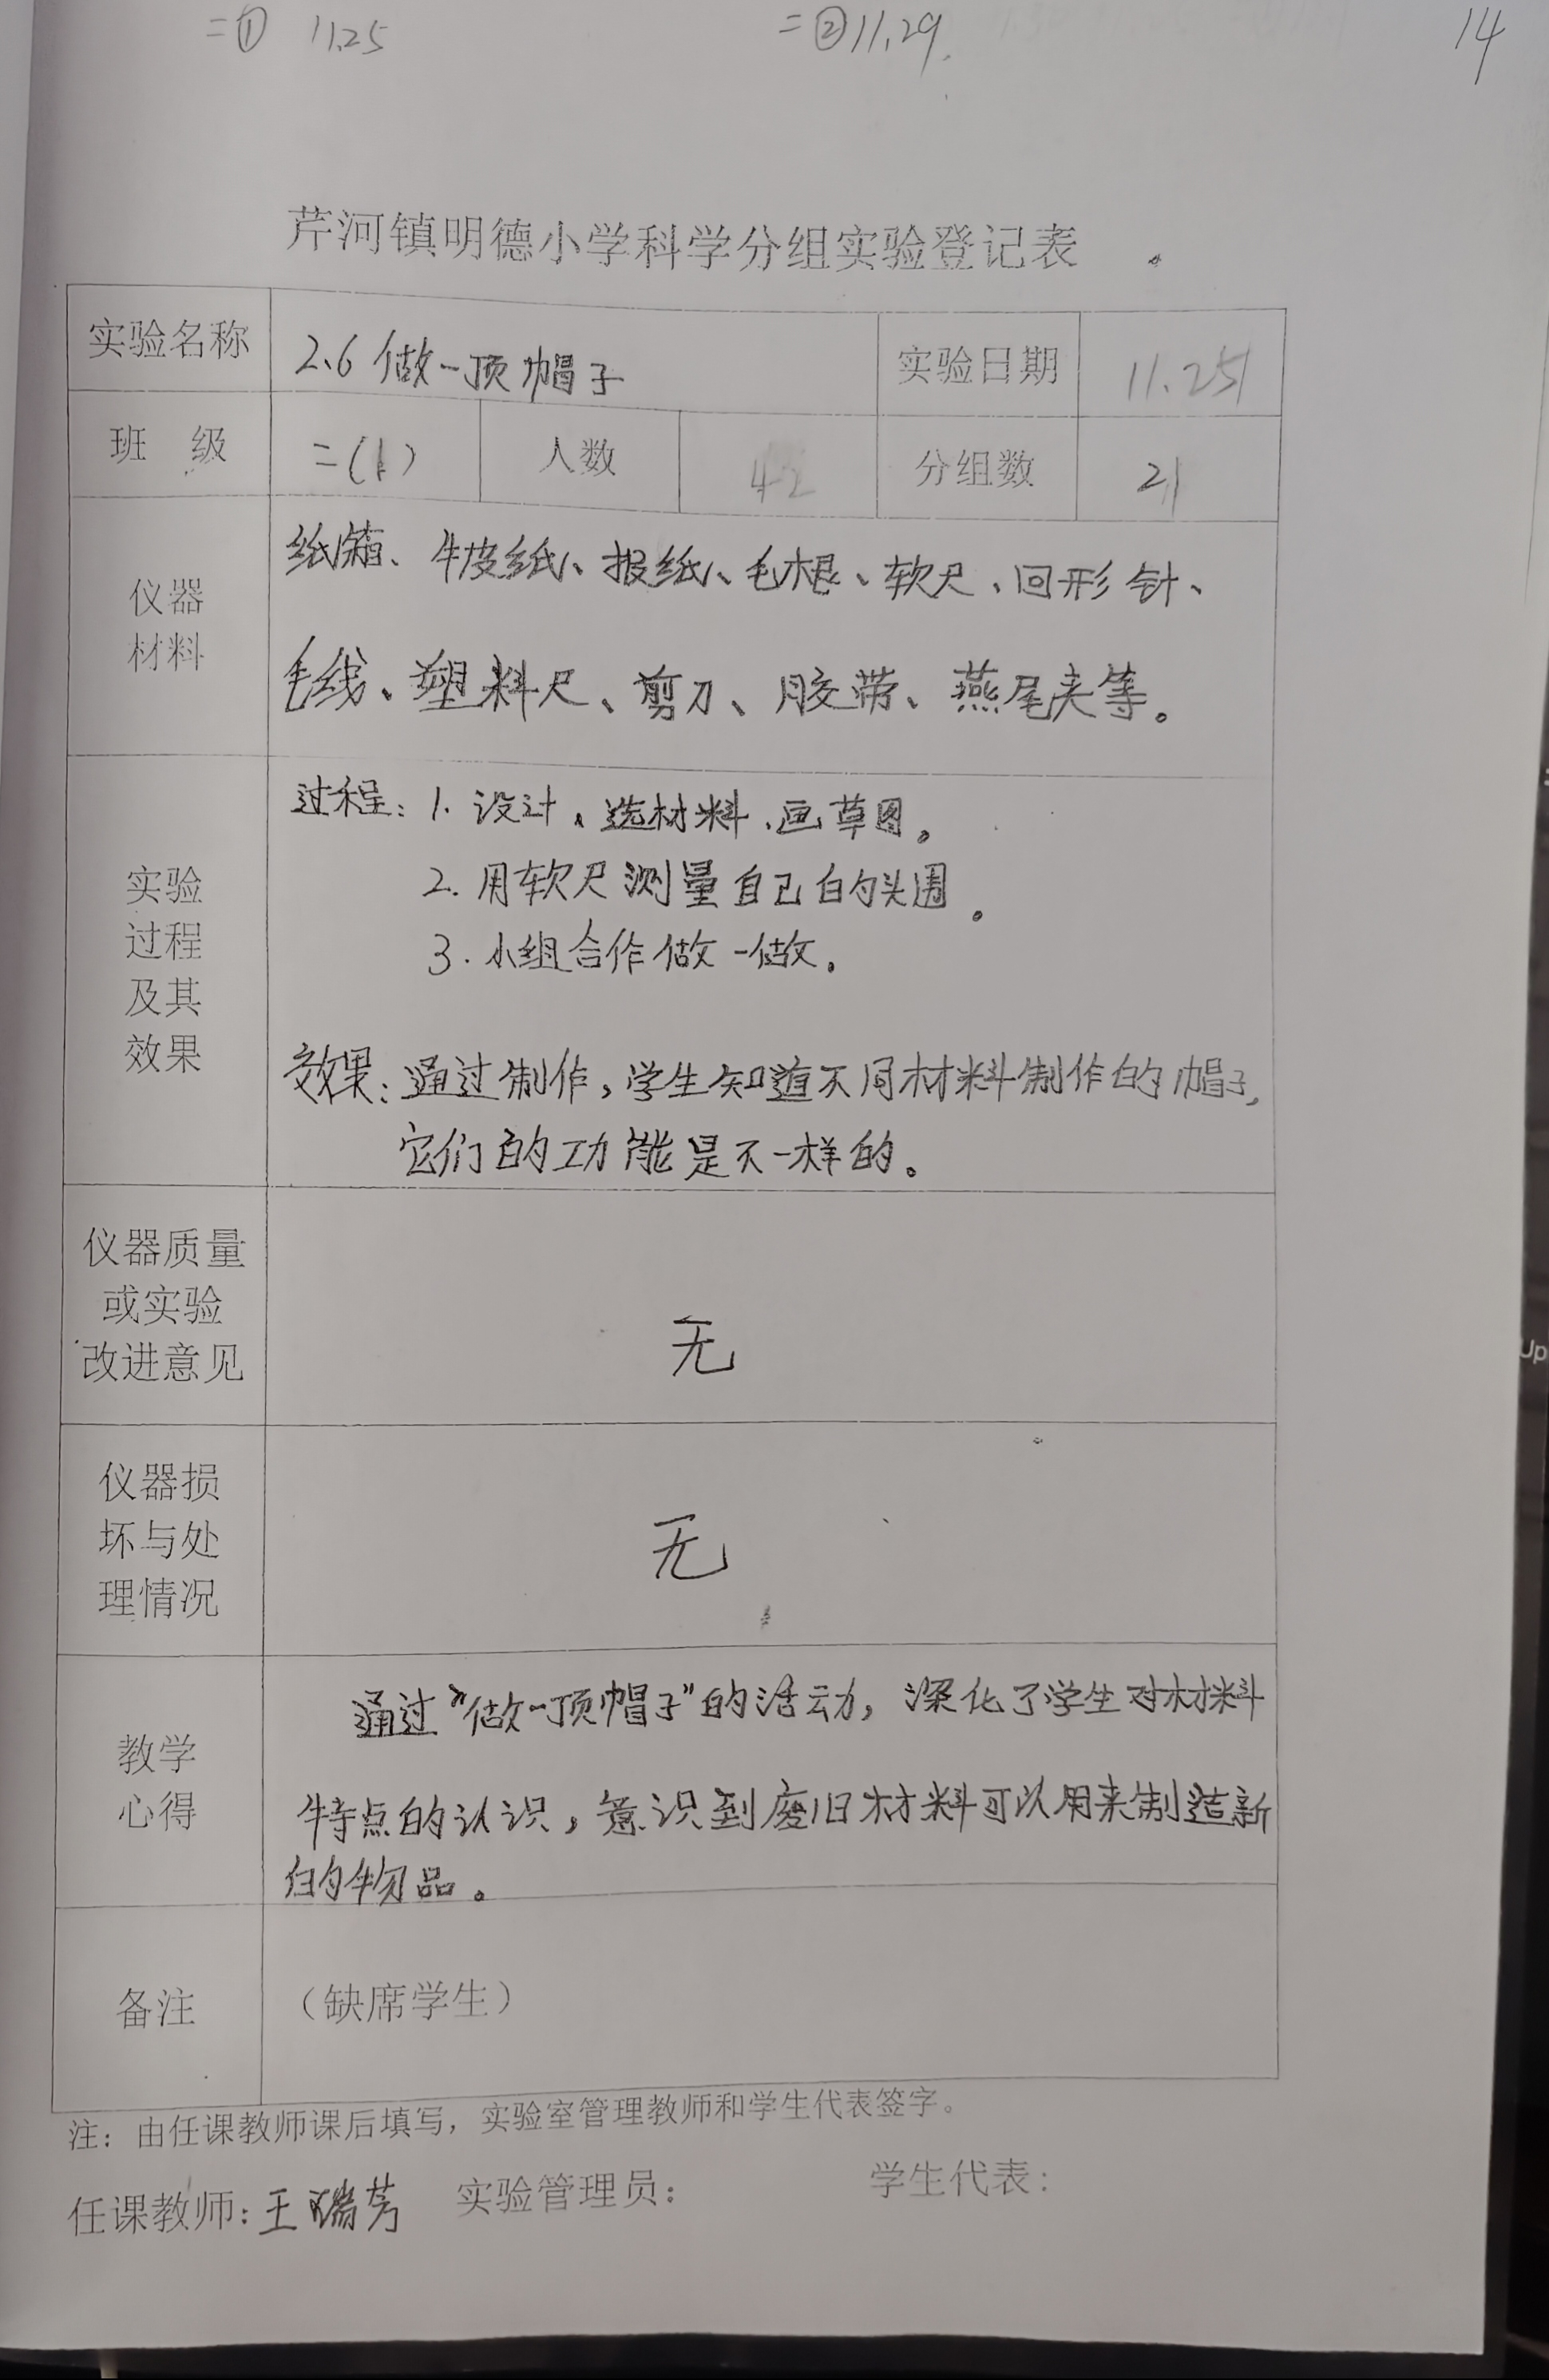 二① 11.25 二②11.29. 14
芹河镇明德小学科学分组实验登记表
实验名称 2.6 做一顶帽子 实验日期 11.25
班 级 二(1) 人数 42 分组数 21
仪器
材料
纸箱、牛皮纸、报纸、毛根、软尺、回形针、
毛线、塑料尺、剪刀、胶带、燕尾夹等。
实验
过程
及其
效果
过程：1. 设计、选材料、画草图。
2. 用软尺测量自己的头围。
3. 小组合作做一做。
效果：通过制作，学生知道不同材料制作的帽子，
它们的功能是不一样的。
仪器质量
或实验
改进意见
无
仪器损
坏与处
理情况
无
教学
心得
通过"做一顶帽子"的活动，深化了学生对材料
特点的认识，意识到废旧材料可以用来制造新
的物品。
备注 （缺席学生）
注：由任课教师课后填写，实验室管理教师和学生代表签字。
任课教师：王瑞芳 实验管理员： 学生代表：
Up